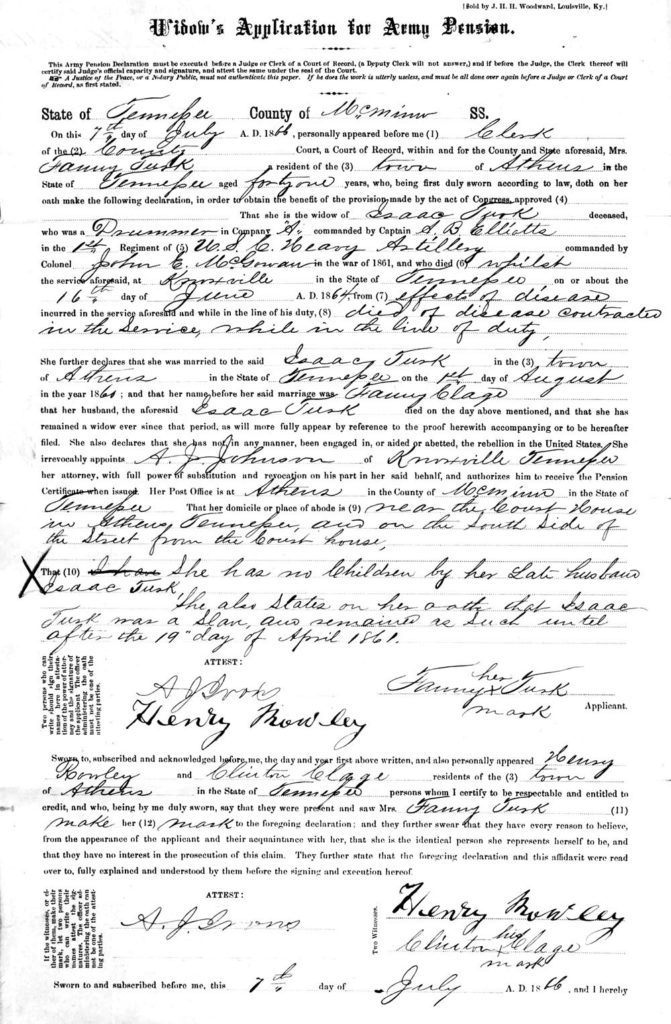 [Sold by J. H. H. Woodward, Louisville, Ky.]
Widow's Application for Army Pension.
This Army Pension Declaration must be executed before a Judge or Clerk of a Court of Record, (a Deputy Clerk will not answer,) and if before the Judge, the Clerk thereof will
certify said Judge's official capacity and signature, and attest the same under the seal of the Court.
A Justice of the Peace, or a Notary Public, must not authenticate this paper. If he does the work is utterly useless, and must be all done over again before a Judge or Clerk of a Court
of Record, as first stated.
State of Tennessee County of McMinn SS.
On this 7th day of July A. D. 1866, personally appeared before me (1) Clerk
of the (2) County Court, a Court of Record, within and for the County and State aforesaid, Mrs.
Fanny Tusk a resident of the (3) town of Athens in the
State of Tennessee aged forty one years, who, being first duly sworn according to law, doth on her
oath make the following declaration, in order to obtain the benefit of the provision made by the act of Congress, approved (4)
That she is the widow of Isaac Tusk deceased,
who was a Drummer in Company "A" commanded by Captain A. B. Elliotts
in the 1st Regiment of (5) U. S. C. Heavy Artillery commanded by
Colonel John E. McGowan in the war of 1861, and who died (6) whilst
the service aforesaid, at Knoxville in the State of Tennessee, on or about the
16th day of June A. D. 1864, from (7) effects of disease
incurred in the service aforesaid and while in the line of his duty, (8) died of disease contracted
in the service, while in the line of duty,
She further declares that she was married to the said Isaac Tusk in the (3) town
of Athens in the State of Tennessee on the 1st day of August
in the year 1861; and that her name before her said marriage was Fanny Clage
that her husband, the aforesaid Isaac Tusk died on the day above mentioned, and that she has
remained a widow ever since that period, as will more fully appear by reference to the proof herewith accompanying or to be hereafter
filed. She also declares that she has not in any manner, been engaged in, or aided or abetted, the rebellion in the United States. She
irrevocably appoints A. J. Johnson of Knoxville Tennessee
her attorney, with full power of substitution and revocation on his part in her said behalf, and authorizes him to receive the Pension
Certificate when issued. Her Post Office is at Athens in the County of McMinn in the State of
Tennessee That her domicile or place of abode is (9) near the Court House
in Athens, Tennessee, and on the South Side of
the Street from the Court house,
X That (10) I have She has no Children by her Late husband
Isaac Tusk,
She also States on her oath that Isaac
Tusk was a Slave, and remained as such until
after the 19th day of April 1861.
ATTEST:
Two persons who can
write should sign their
names here in attesta-
tion of the power of attor-
ney and the signature of
the applicant. The officer
administering the oath
must not be one of the
attesting parties.
A J Irons
Henry Rowley
her
Fanny X Tusk
mark
Applicant.
Sworn to, subscribed and acknowledged before me, the day and year first above written, and also personally appeared Henry
Rowley and Clinton Clage residents of the (3) town
of Athens in the State of Tennessee persons whom I certify to be respectable and entitled to
credit, and who, being by me duly sworn, say that they were present and saw Mrs. Fanny Tusk (11)
make her (12) mark to the foregoing declaration; and they further swear that they have every reason to believe,
from the appearance of the applicant and their acquaintance with her, that she is the identical person she represents herself to be, and
that they have no interest in the prosecution of this claim. They further state that the foregoing declaration and this affidavit were read
over to, fully explained and understood by them before the signing and execution hereof.
ATTEST:
If the witnesses, or ei-
ther of them, make their
mark, let two persons
who can write their
names attest the sig-
natures. The officer ad-
ministering the oath can
not be one of the attest-
ing parties.
A. J. Irons
Two Witnesses.
Henry Rowley
his
Clinton X Clage
mark
Sworn to and subscribed before me, this 7th day of July A. D. 1866, and I hereby